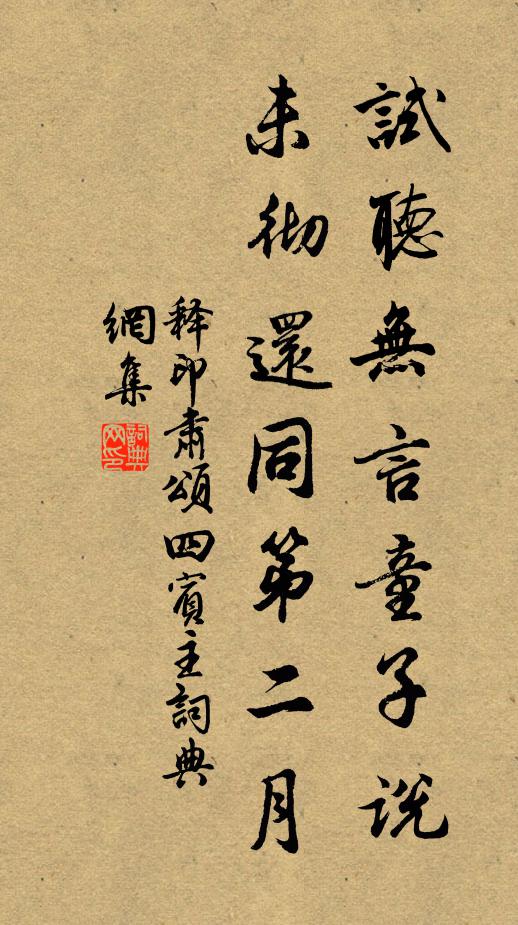 試聽無言童子說
未徹還同第二月
釋印肅頌四賓主詞典
網集
詞典網印